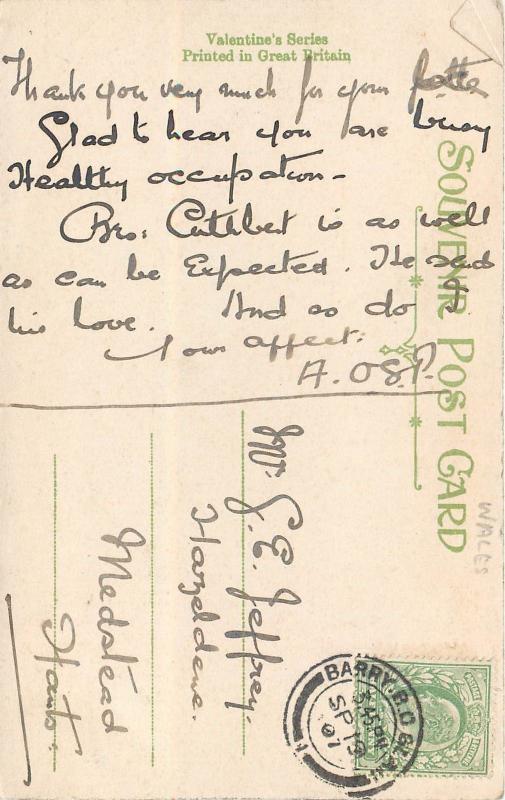 Valentine's Series
Printed in Great Britain
SOUVENIR POST CARD
Thank you very much for your letter
Glad to hear you are busy
Healthy occupation -
Bro: Cuthbert is as well
as can be Expected. He sends
his love. And so do I
Your affect:
A. OSP.
Mr. G. E. Jeffrey.
Hazeldene.
Medstead
Hants.
WALES
BARRY. S.O. GLAM
3.45 PM
SP 13
07